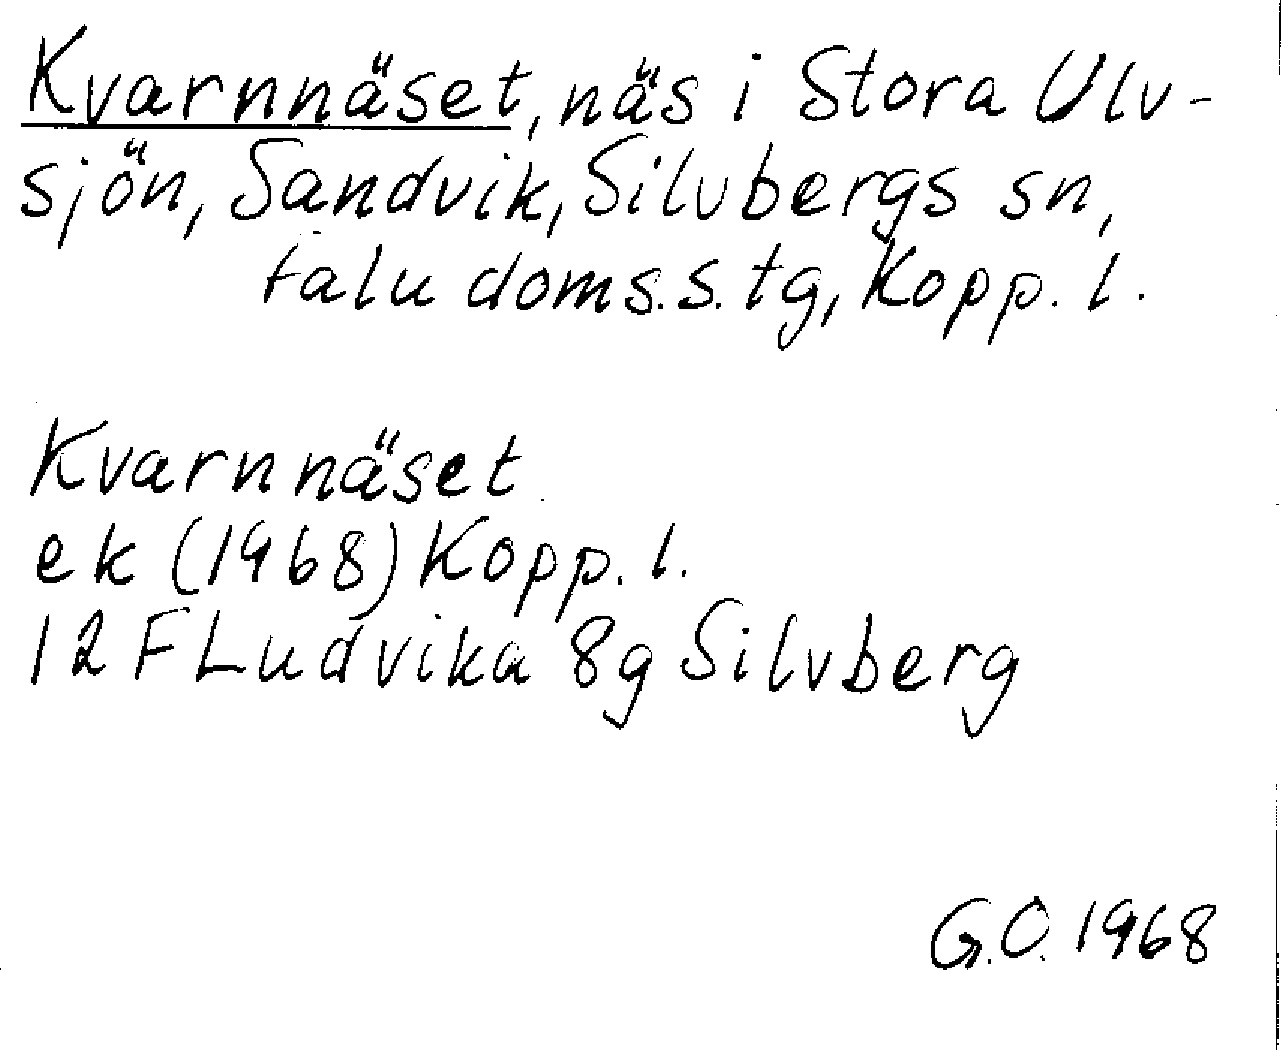 Kvarnnäset, näs i Stora Ulv-
sjön, Sandvik, Silvbergs sn,
falu doms.s.tg, Kopp. l.
Kvarnnäset
ek (1968) Kopp. l.
12 F Ludvika 8g Silvberg
G.O. 1968